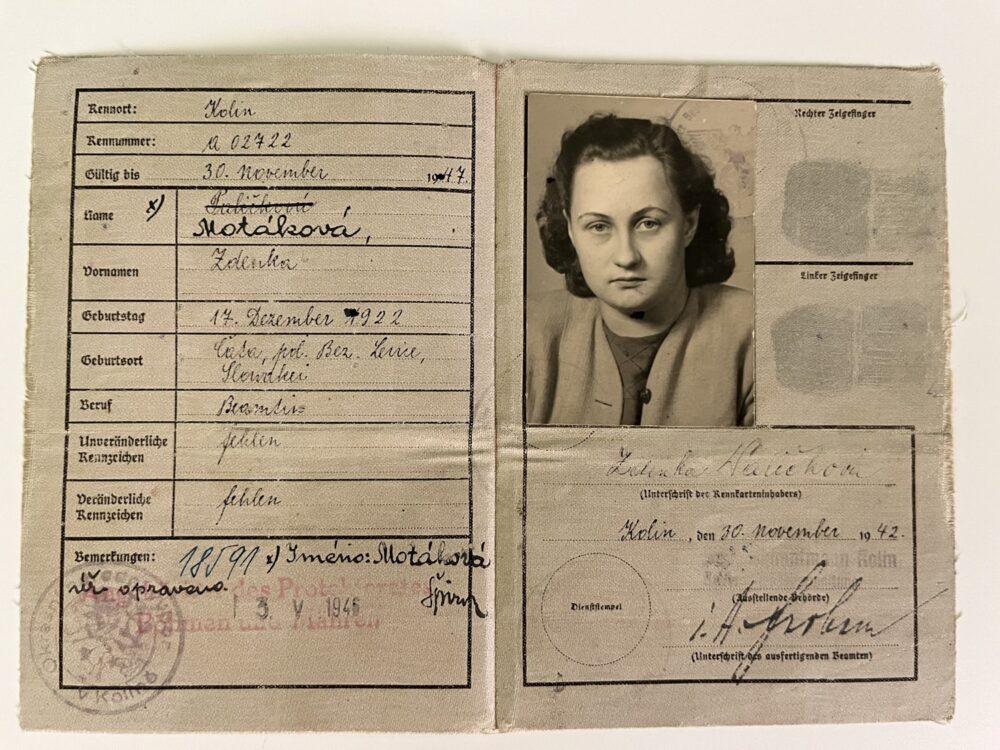 Kennort: Kolin
Kennummer: a 02722
Gültig bis 30. November 1947.
Name x)
Motáková,
Vornamen Zdenka
Geburtstag 17. Dezember 1922
Geburtsort Čata, pol. Bez. Levice,
Slowakei
Beruf Beamtin
Unveränderliche
Kennzeichen fehlen
Veränderliche
Kennzeichen fehlen
Bemerkungen: 18591 x) Jméno: Motáková
opraveno.
des Protektorates
13 V 1946
Böhmen und Mähren
v Kolíně
Rechter Zeigefinger
Linker Zeigefinger
Zdenka
(Unterschrift des Kennkarteninhabers)
Kolin, den 30. November 1942.
in Kolin
(Ausstellende Behörde)
Dienststempel
i. A.
(Unterschrift des ausfertigenden Beamten)